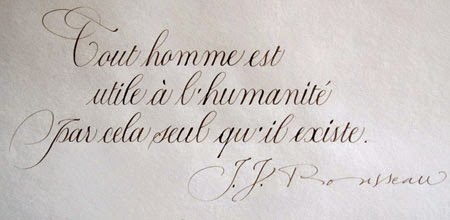 Tout homme est
utile à l'humanité
par cela seul qu'il existe.
J. J. Rousseau